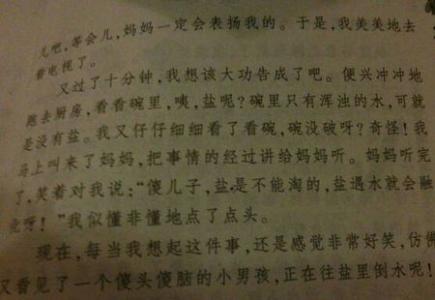 儿吧,等会儿,妈妈一定会表扬我的。于是,我美美地去
看电视了。
又过了十分钟,我想该大功告成了吧。便兴冲冲地
跑去厨房,看看碗里,咦,盐呢?碗里只有浑浊的水,可就
是没有盐。我又仔仔细细看了看碗,碗没破呀?奇怪!我
马上叫来了妈妈,把事情的经过讲给妈妈听。妈妈听完
了,笑着对我说:“傻儿子,盐是不能淘的,盐遇水就会融
化呀!”我似懂非懂地点了点头。
现在,每当我想起这件事,还是感觉非常好笑,仿佛
又看见了一个傻头傻脑的小男孩,正在往盐里倒水呢!